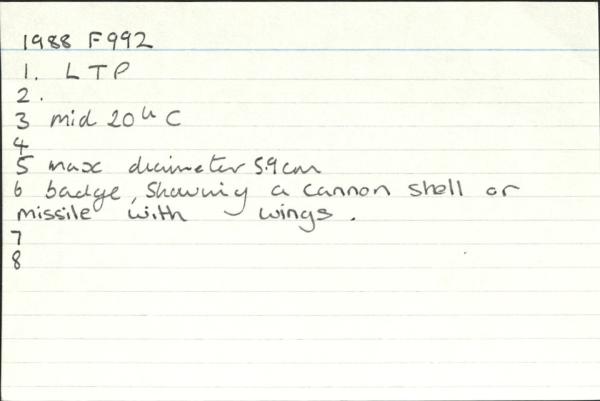 1988 F992
1. LTP
2.
3 mid 20th C
4
5 max diameter 5.9cm
6 badge, showing a cannon shell or
missile with wings.
7
8